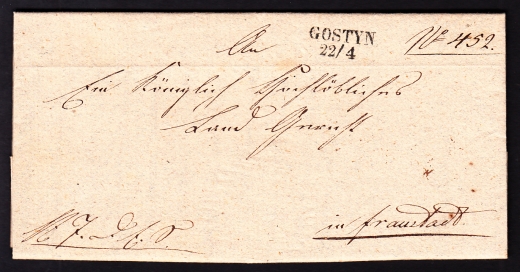 An
GOSTYN
22/4
No 452.
Ein Königlich Hochlöbliches
Land Gericht
in Fraustadt